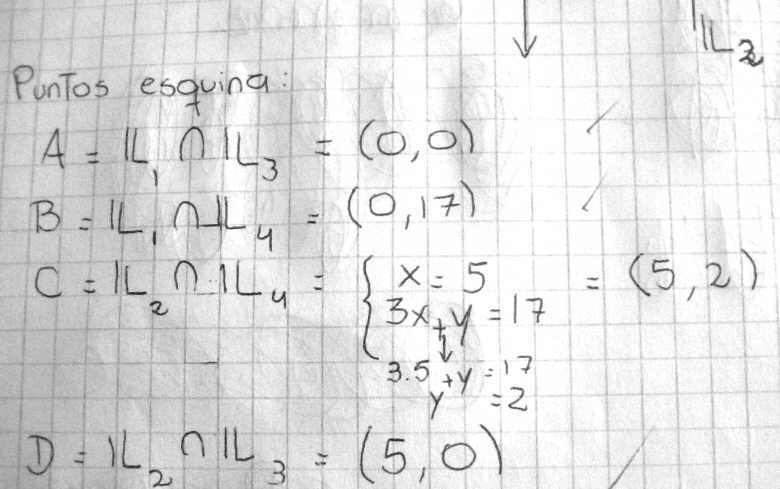 𝕃₂
Puntos esquina:
A = 𝕃₁ ∩ 𝕃₃ = (0,0)
B = 𝕃₁ ∩ 𝕃₄ = (0,17)
C = 𝕃₂ ∩ 𝕃₄ = { x = 5 = (5,2)
3x + y = 17
3.5 + y = 17
y = 2
D = 𝕃₂ ∩ 𝕃₃ = (5,0)